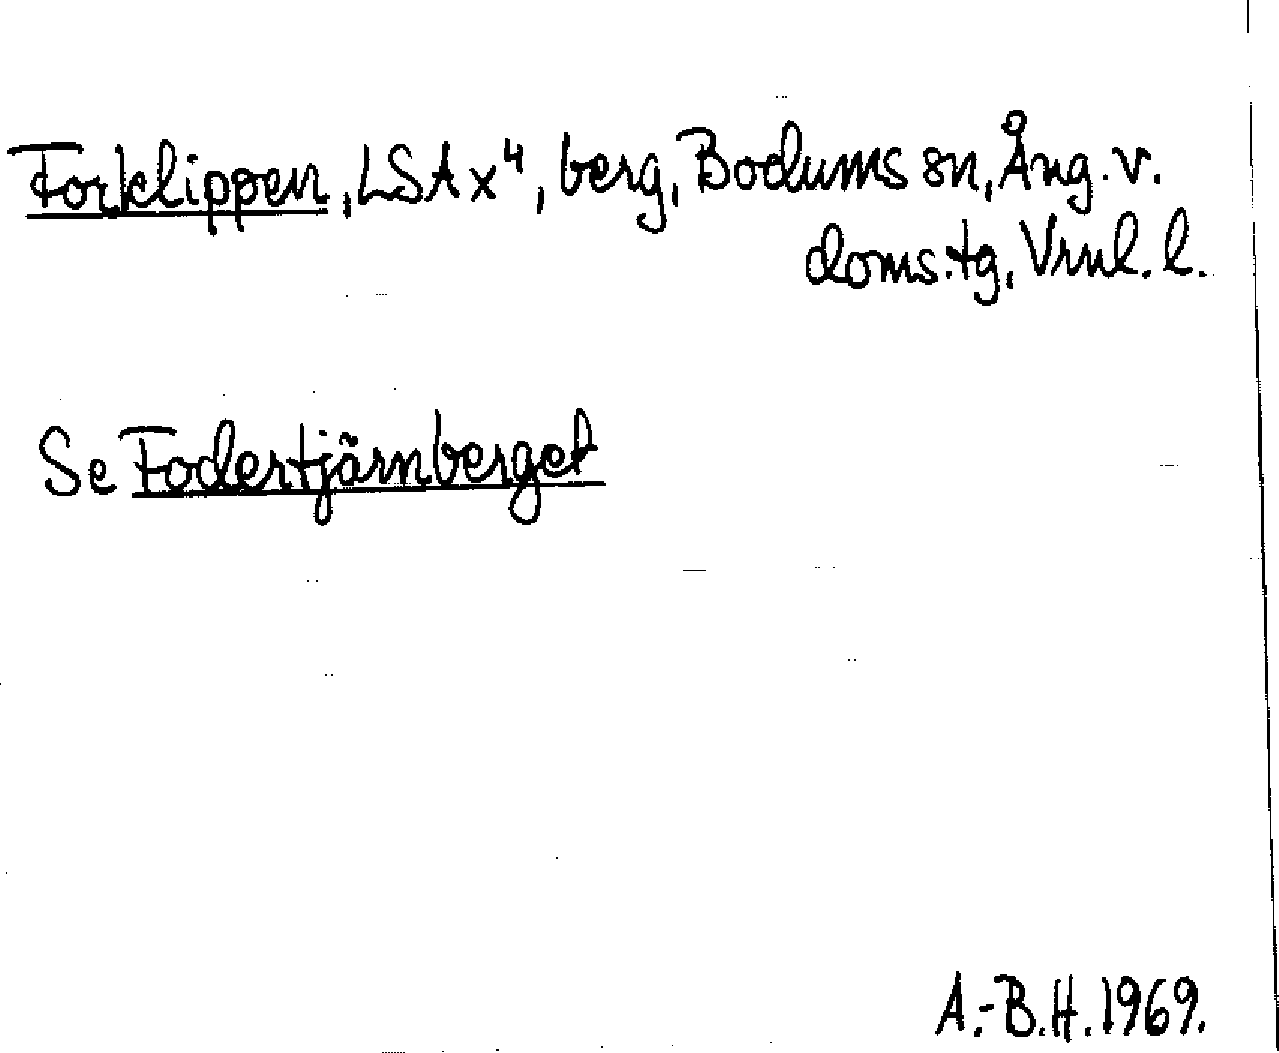 Forklippen, LSA x⁴, berg, Bodums sn, Ång. v.
doms.tg, Vrnl. l.
Se Fodertjärnberget
A.-B.H. 1969.